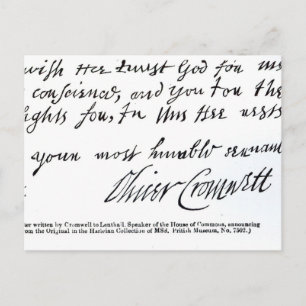 wish Hee trust God for me
conscience, and you for the
ights for, In this Hee rests
your most humble servant
Oliver Cromwell
er written by Cromwell to Lenthall, Speaker of the House of Commons, announcing
om the Original in the Harleian Collection of MSS, British Museum, No. 7502.)